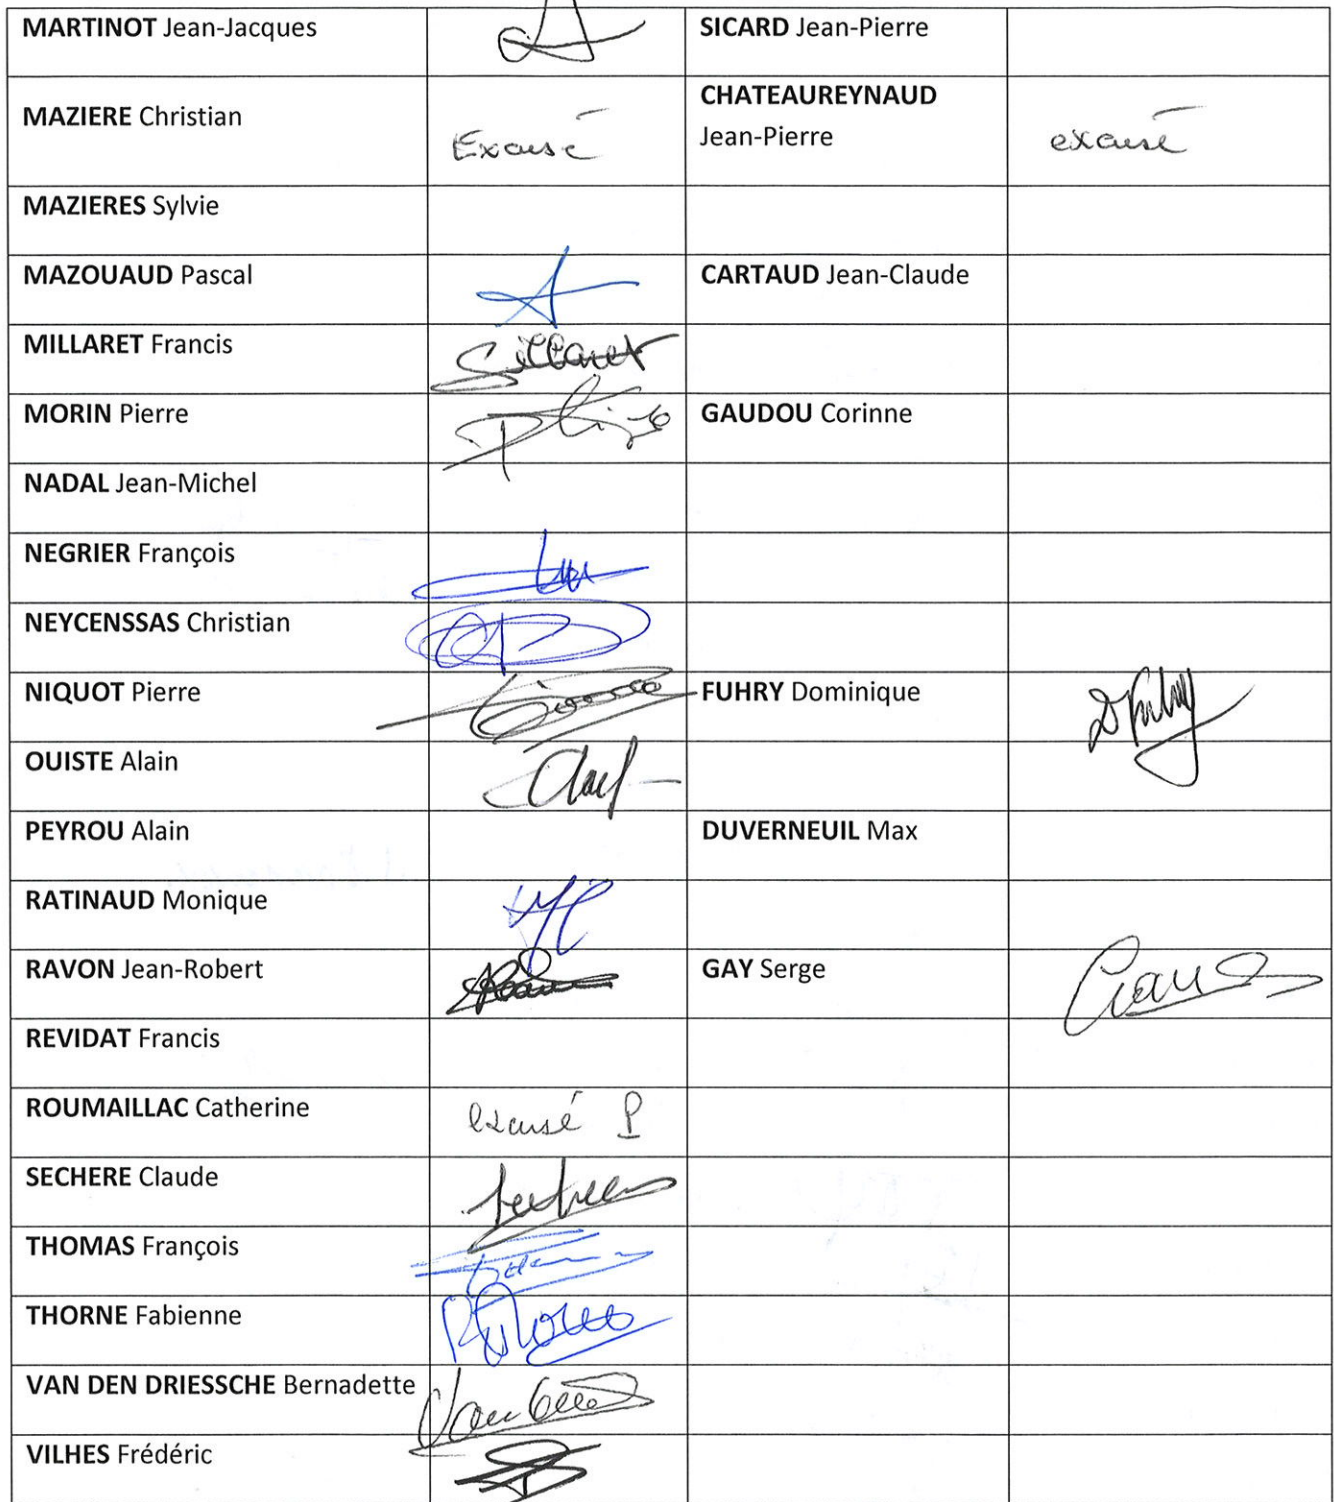 MARTINOT Jean-Jacques SICARD Jean-Pierre
MAZIERE Christian Excusé CHATEAUREYNAUD
Jean-Pierre excusé
MAZIERES Sylvie
MAZOUAUD Pascal CARTAUD Jean-Claude
MILLARET Francis
MORIN Pierre GAUDOU Corinne
NADAL Jean-Michel
NEGRIER François
NEYCENSSAS Christian
NIQUOT Pierre FUHRY Dominique DFuhry
OUISTE Alain
PEYROU Alain DUVERNEUIL Max
RATINAUD Monique
RAVON Jean-Robert GAY Serge
REVIDAT Francis
ROUMAILLAC Catherine excusé P
SECHERE Claude
THOMAS François
THORNE Fabienne
VAN DEN DRIESSCHE Bernadette
VILHES Frédéric